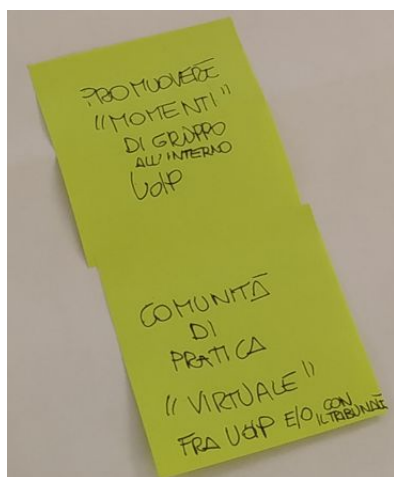 PROMUOVERE
"MOMENTI"
DI GRUPPO
ALL'INTERNO
UdP
COMUNITÀ
DI
PRATICA
"VIRTUALE"
FRA UdP E/O CON
IL TRIBUNALE